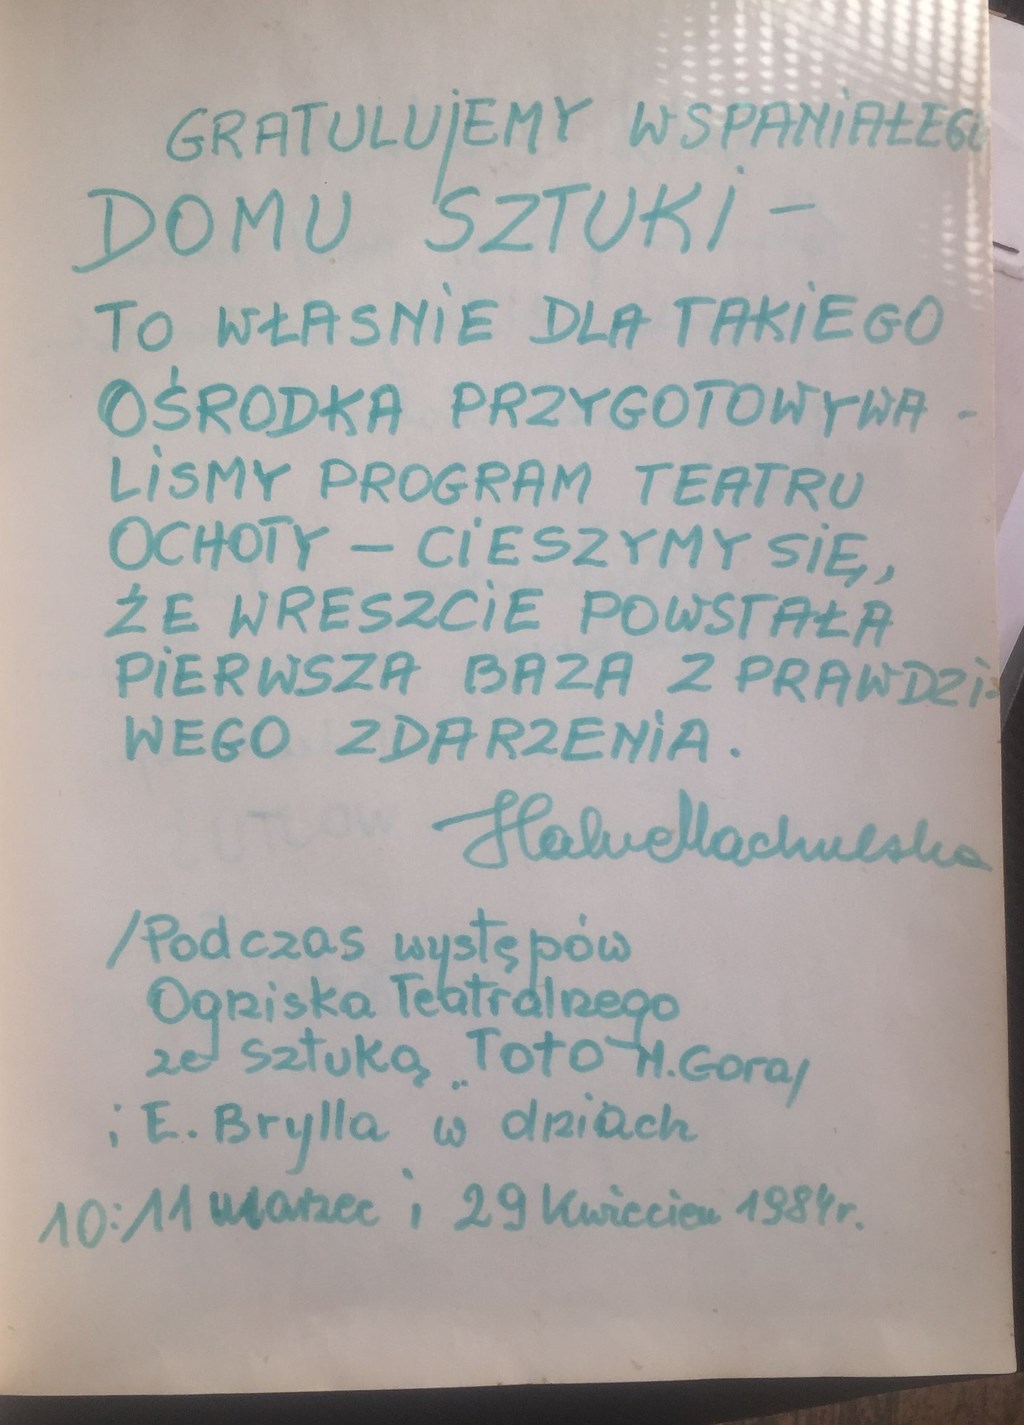 GRATULUJEMY WSPANIAŁEGO
DOMU SZTUKI –
TO WŁASNIE DLA TAKIEGO
OŚRODKA PRZYGOTOWYWA -
LISMY PROGRAM TEATRU
OCHOTY – CIESZYMY SIĘ,
ŻE WRESZCIE POWSTAŁA
PIERWSZA BAZA Z PRAWDZI-
WEGO ZDARZENIA.
Halina Machulska
/Podczas występów
Ogniska Teatralnego
ze sztuką „Toto" H. Goraj
i E. Brylla w dniach
10 i 11 marzec i 29 kwiecień 1984 r.